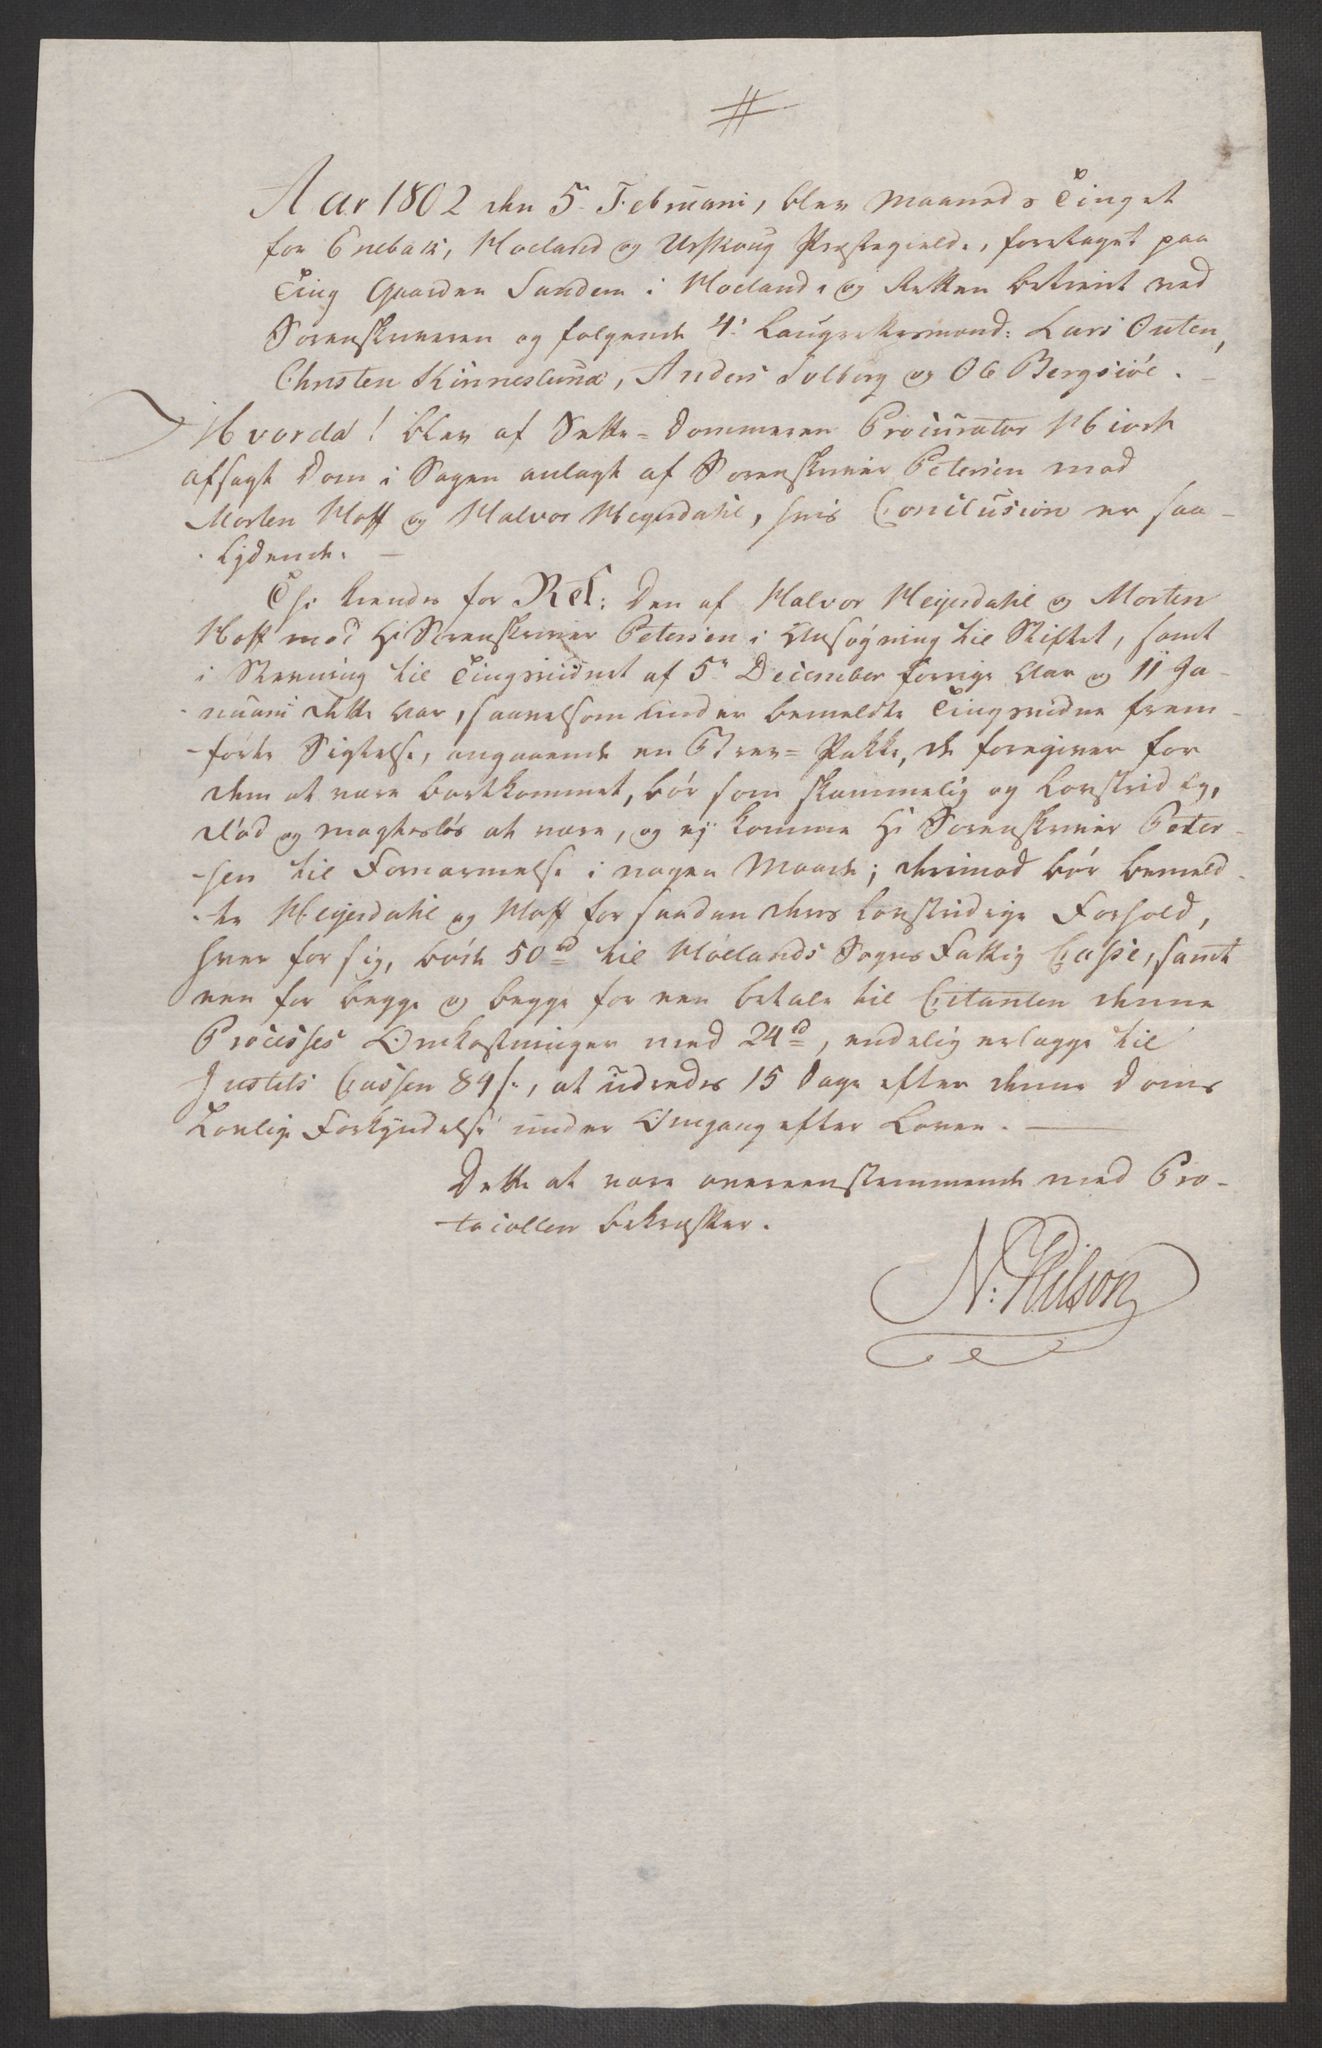 #
Aar 1802 den 5. Februarii, blev Maaneds Tinget
for Enebak, Høland og Urskoug Præstegield, foretaget paa
Ting Gaarden Sundem i Høeland, og Retten betient ved
Sorenskriveren og følgende 4. Laugrettesmænd: Lars Outen,
Christen Kinneslund, Anders Solberg og Ole Bergsiöe. -
Hvorda! blev af Sætte-Dommeren Procurator Hiorth
afsagt Dom i Sagen anlagt af Sorenskriver Petersen mod
Morten Hoff og Halvor Heyerdahl, hvis Conclusion er saa-
lydende. -
Thi kiendes for Ret: Den af Halvor Heyerdahl og Morten
Hoff mod Hr Sorenskriver Petersen i Ansøgning til Stiftet, samt
i Stevning til Tingsvidnet af 5te December forrige Aar og 11 Ja-
nuarii dette Aar, saavelsom under bemeldte Tingsvidne frem-
-førte Sigtelse, angaaende en Brev-Pakke, de foregiver for
dem at være bortkommet, bør som skammelig og lovstridig,
død og magtesløs at være, og ey komme Hr Sorenskriver Peter-
-sen til Fornærmelse i nogen Maade; derimod bør bemeld-
-te Heyerdahl og Hoff for saadan deres lovstridige Forhold,
hver for sig, bøde 50 rd til Hölands Sogns Fattig Casse, samt
een for begge og begge for een betale til Citanten denne
Processes Omkostninger med 24 rd, endelig erlægge til
Justits Cassen 84 s., at udredes 15 Dage efter denne Doms
Lovlige Forkyndelse under Omgang efter Loven. -
Dette at være overeenstemmende med Pro-
-tocollen bekræfter.
N: Wilson